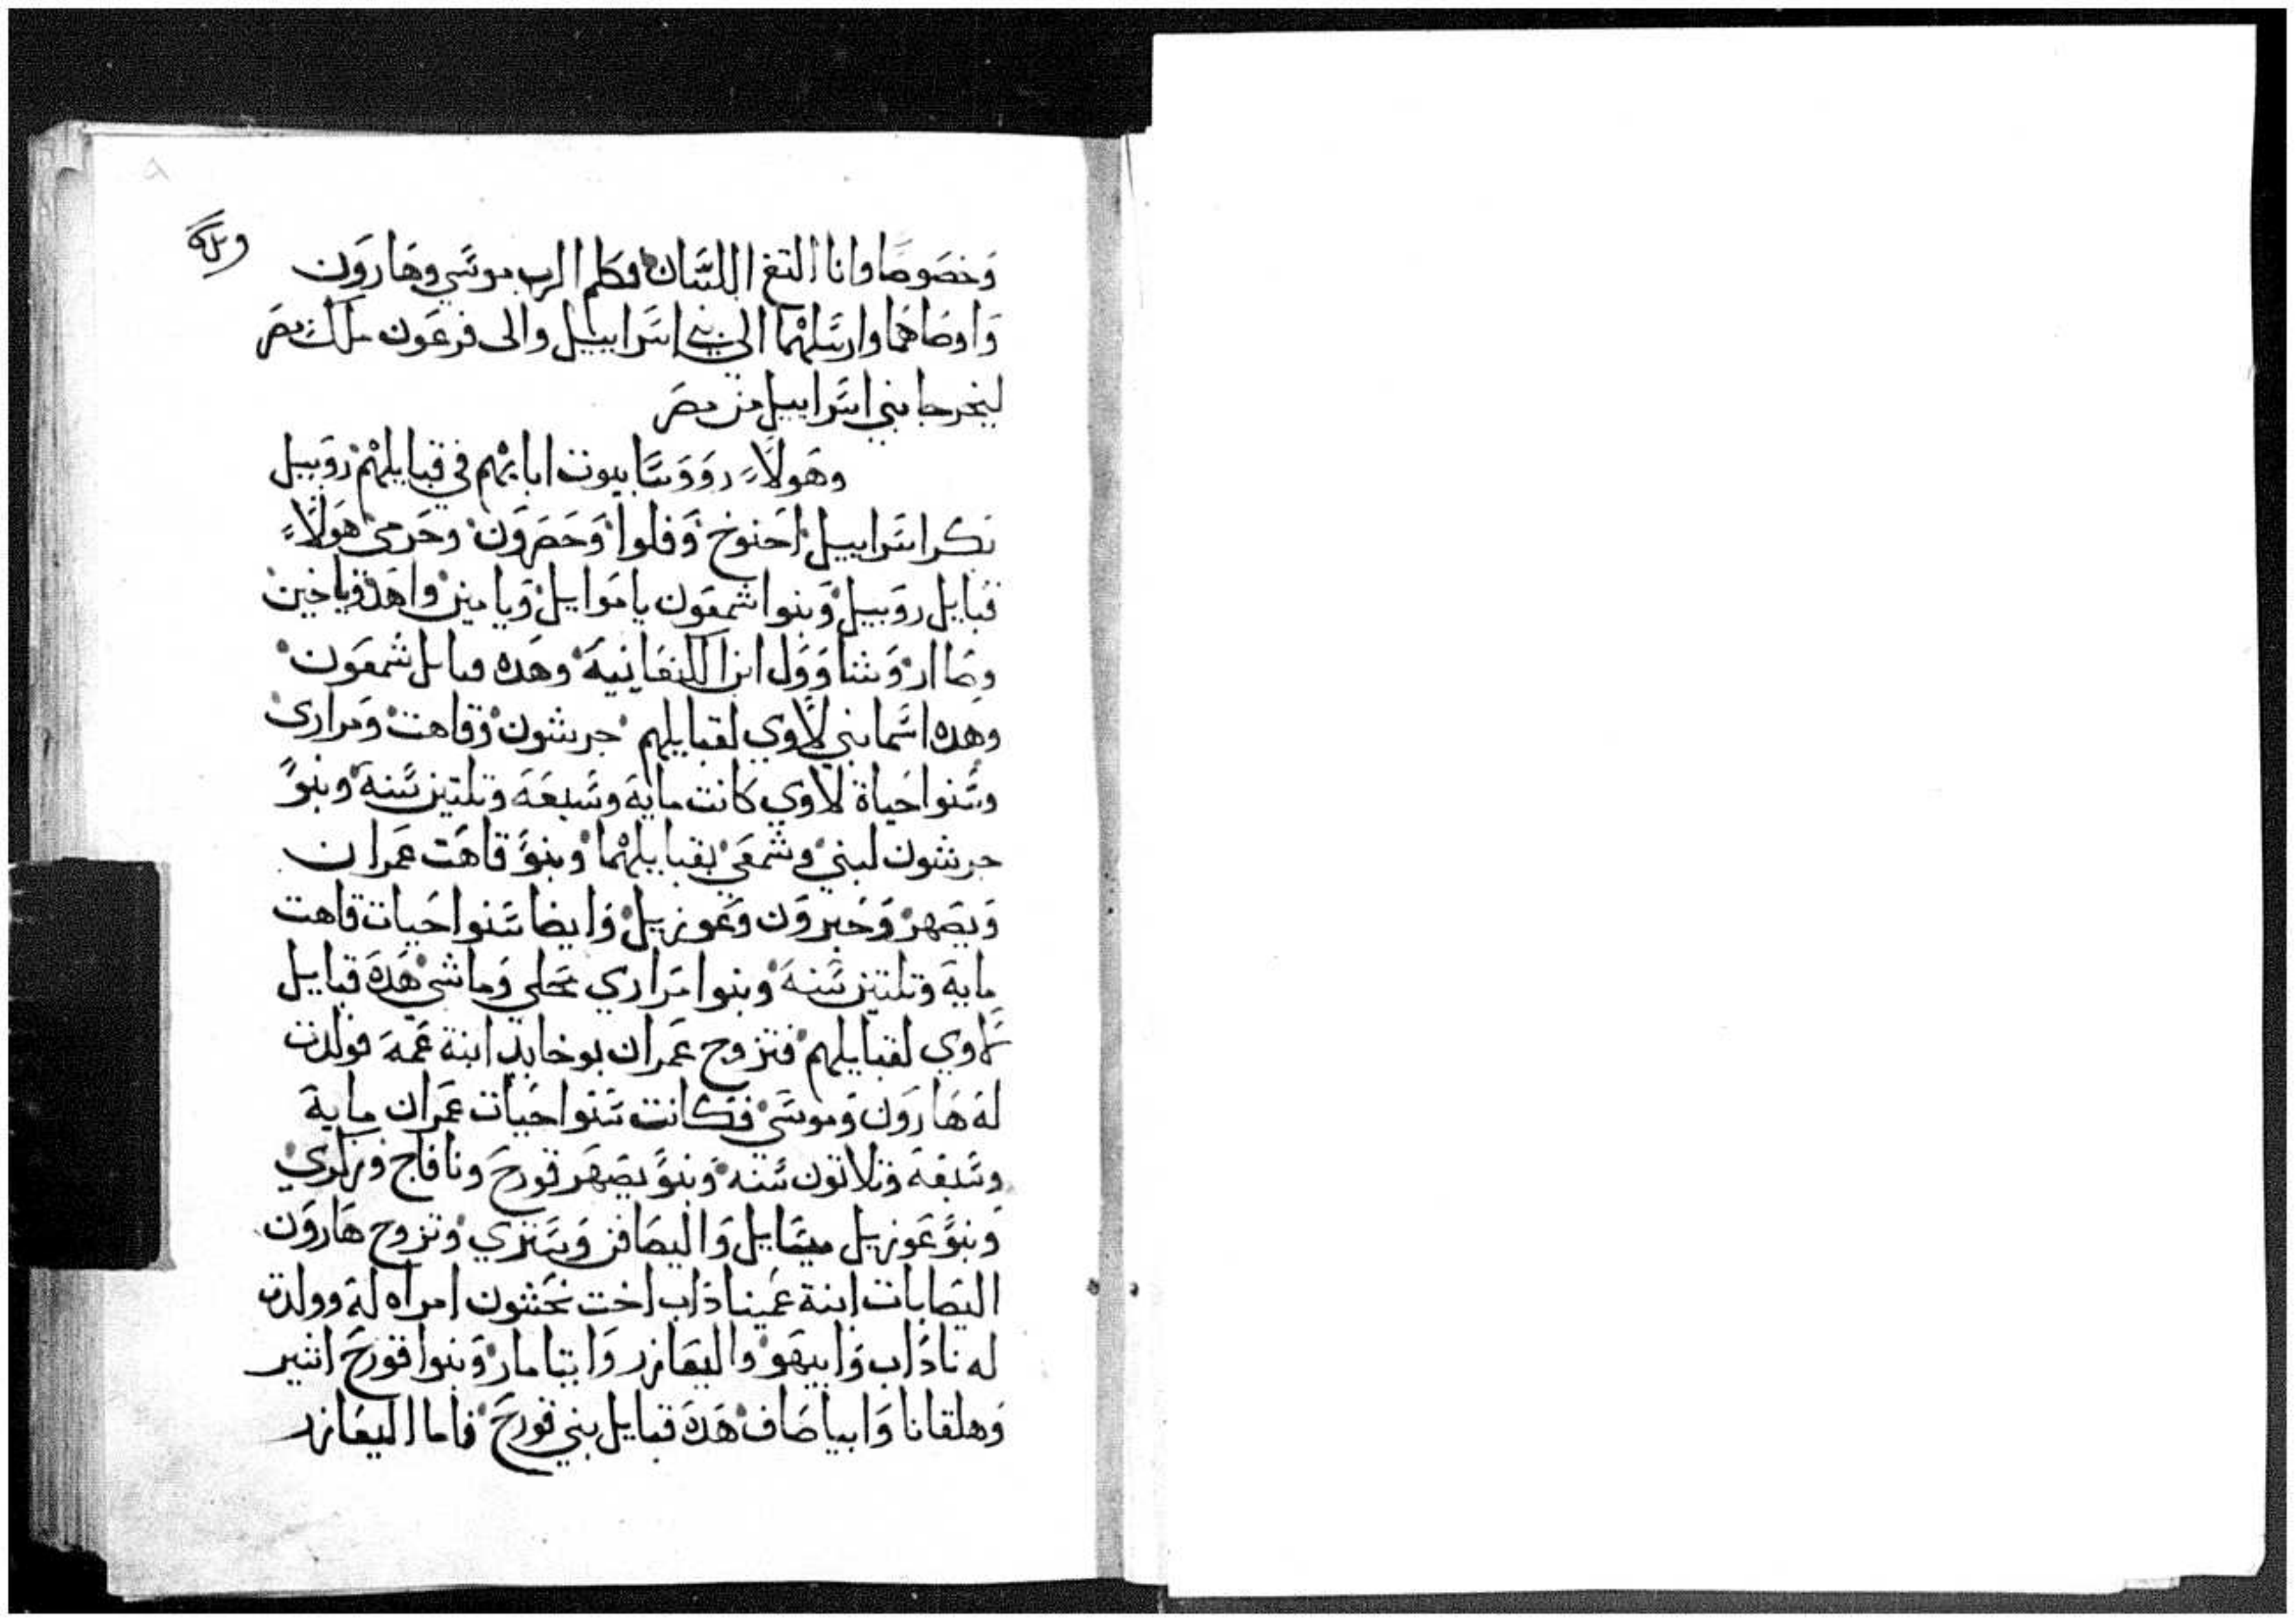 وخصوصًا وانا التغ اللسان فكلم الرب موسي وهارون
واوصاهما وارسلهما الي بني اسراييل والى فرعون ملك مصر
ليخرجا بني اسراييل من مصر
وهولاء رووسا بيوت ابايهم في قبايلهم روبيل
بكر اسراييل احنوخ وفلوا وحصرون وحرمي هولاء
قبايل روبيل وبنوا شمعون ياموايل ويامين واهد وياخين
وصاار وشاوول ابن الكنعانية وهده قبايل شمعون
وهده اسما بني لاوي لقبايلهم جرشون وقاهت ومراري
وسنوا حياة لاوي كانت ماية وسبعة وتلتين سنة وبنو
جرشون لبني وشمعي بقبايلهما وبنو قاهت عمران
ويصهر وحبرون وعوزييل وايضا سنوا حيات قاهت
ماية وتلتين سنة وبنوا مراري محلي وماشي هده قبايل
لاوي لقبايلهم فتزوج عمران يوخابد ابنة عمه فولدت
له هارون وموسي فكانت سنوا حيات عمران ماية
وسبعة وتلاتون سنه وبنو يصهر قورح ونافاج وزكري
وبنو عوزييل ميصايل واليصافن وستري وتزوج هارون
اليصابات ابنة عميناداب اخت نحشون امراه له وولدت
له ناداب وابيهو واليعازر وايتامار وبنوا قورح اشير
وهلقانا وابياصاف هده قبايل بني قورح فاما اليعازر